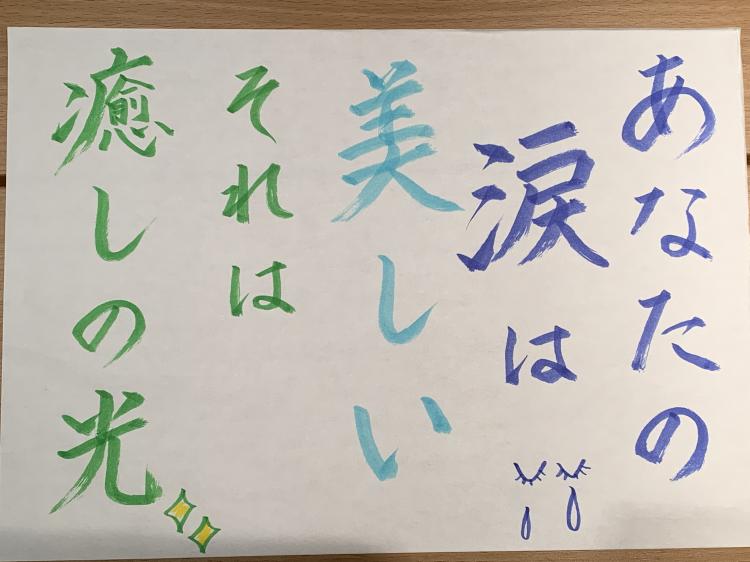 あなたの
涙は
美しい
それは
癒しの光